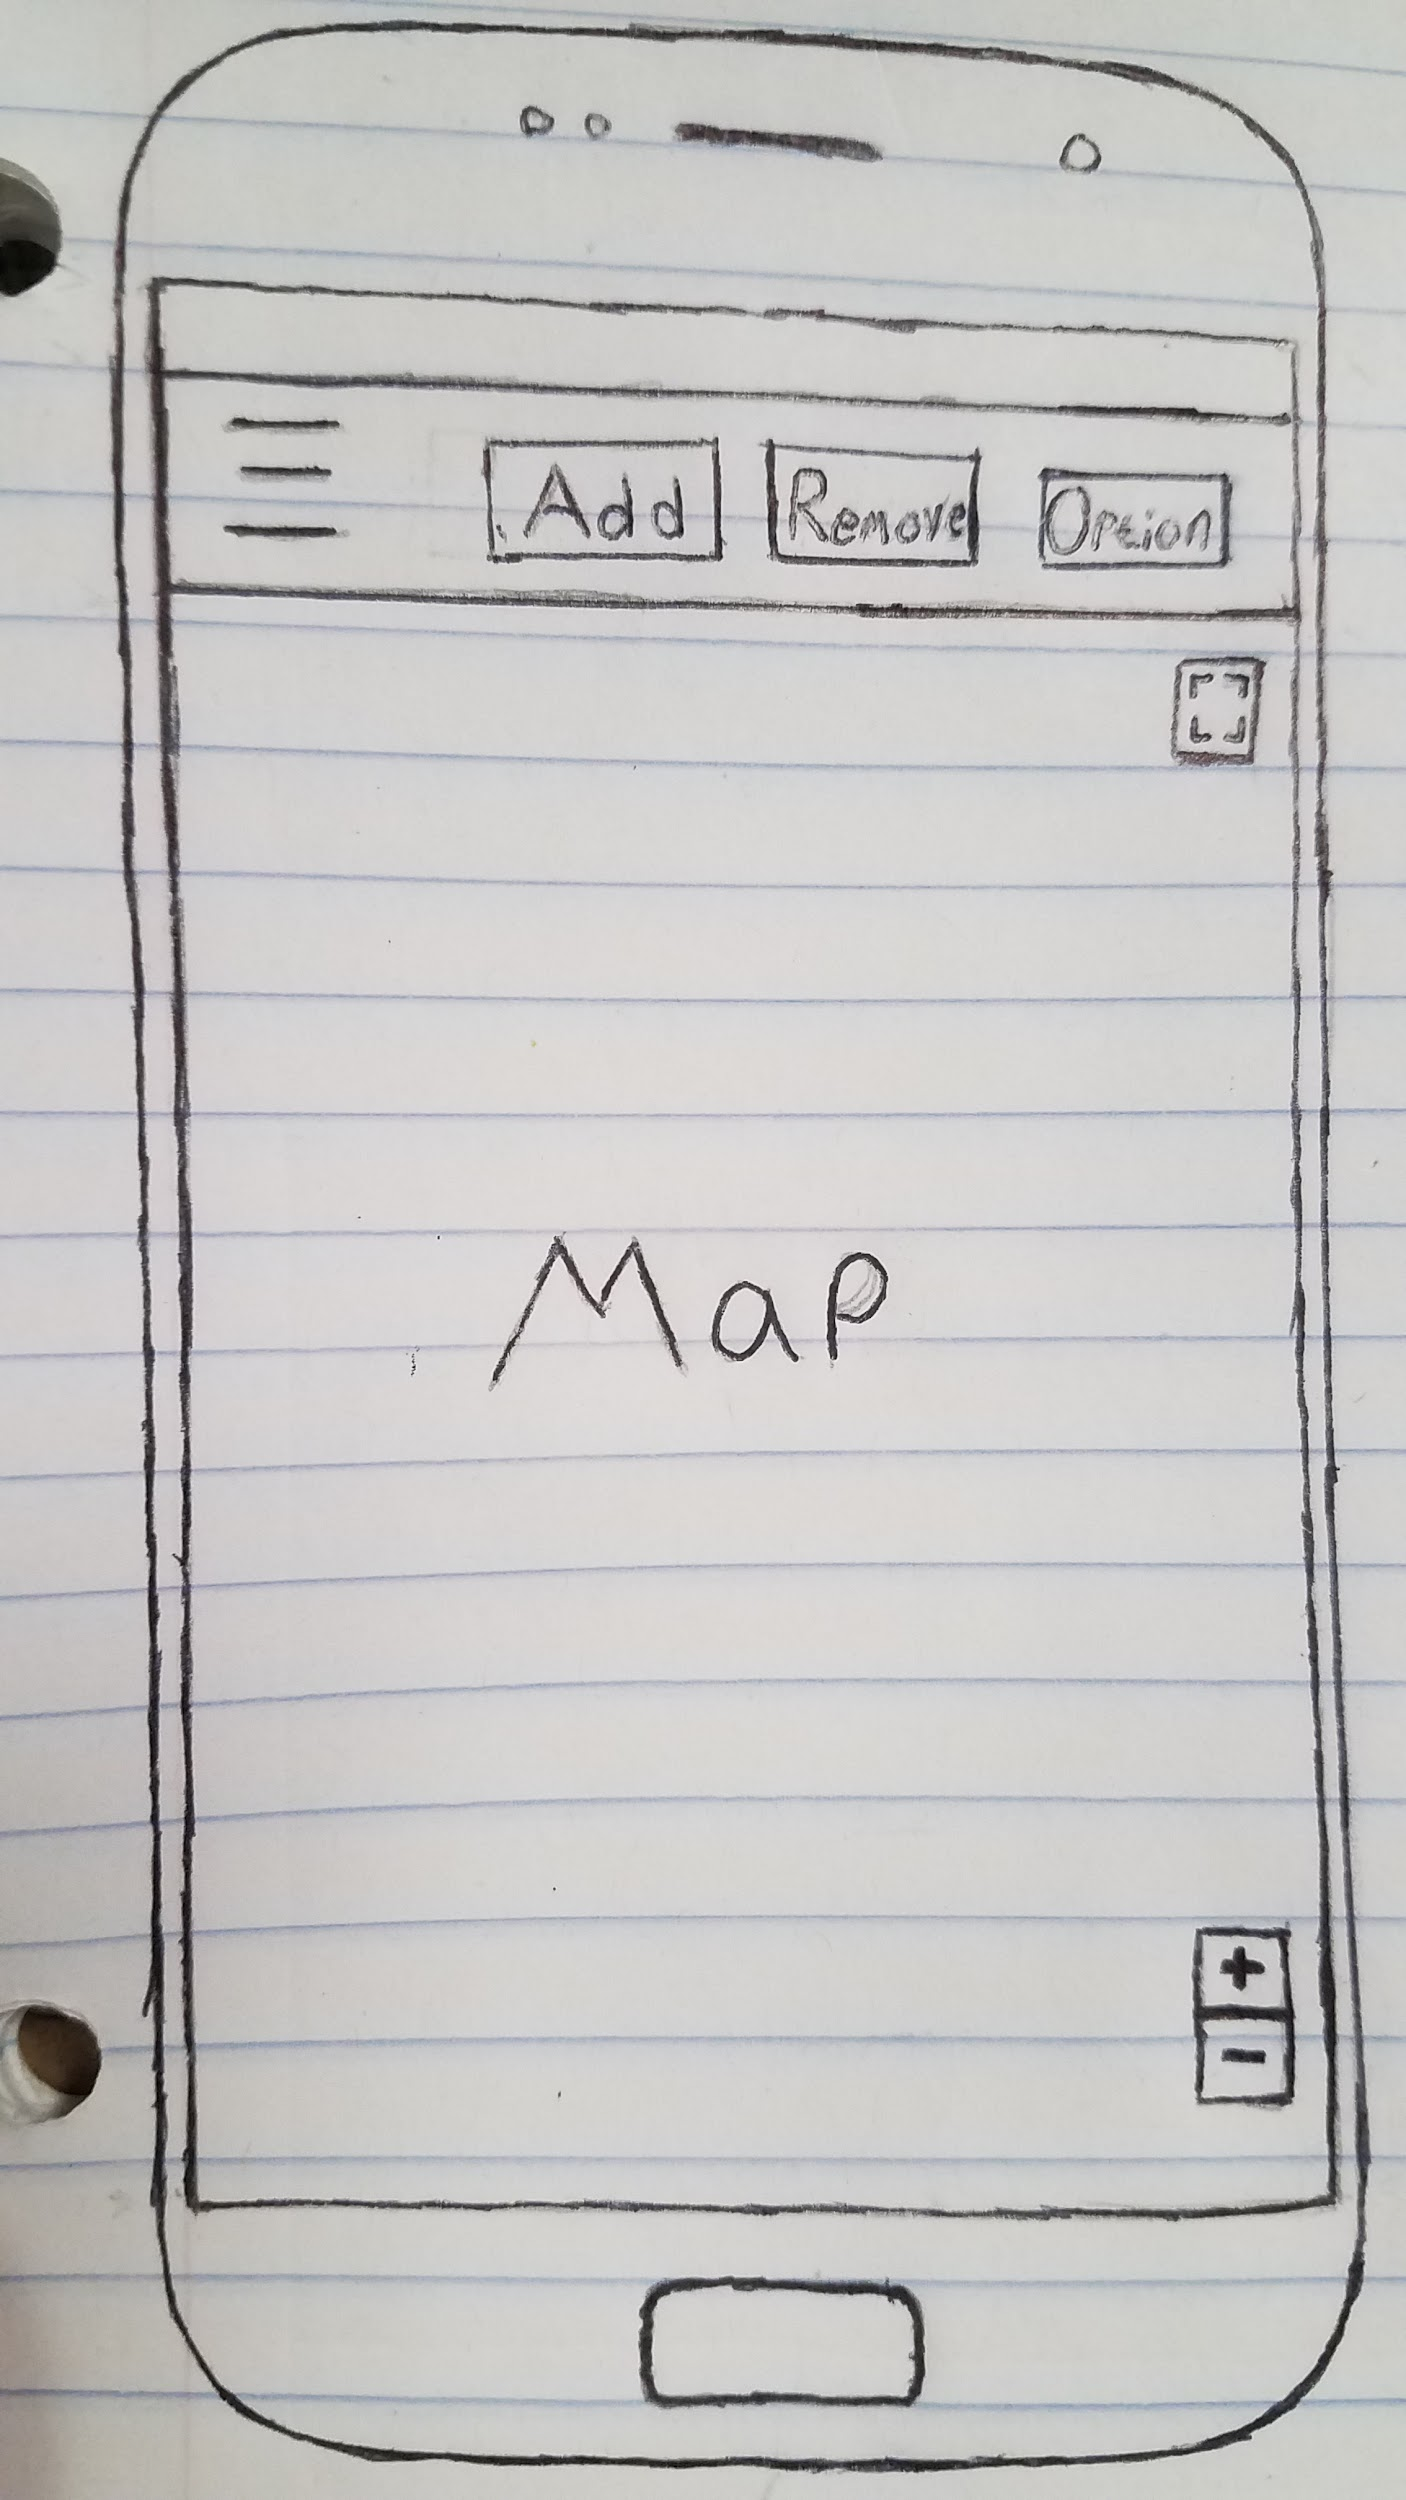 Add Remove Option
Map
+
-